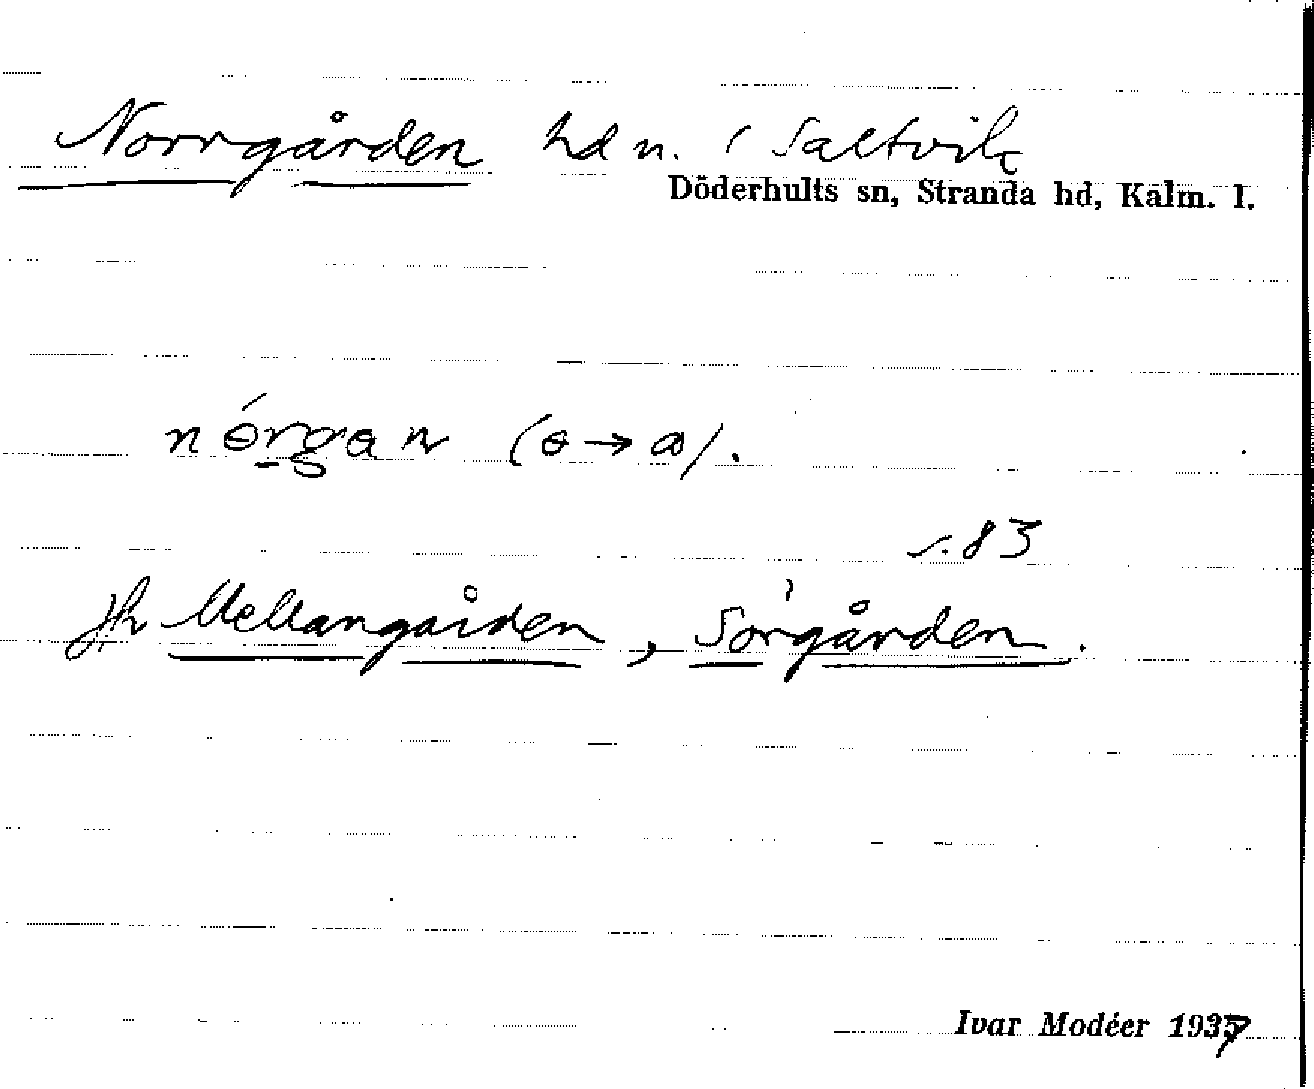 Norrgården hdn. i Saltvik
Döderhults sn, Stranda hd, Kalm. l.
(ɵ→a).
s. 83
jfr Mellangården, Sörgården.
Ivar Modéer 1937